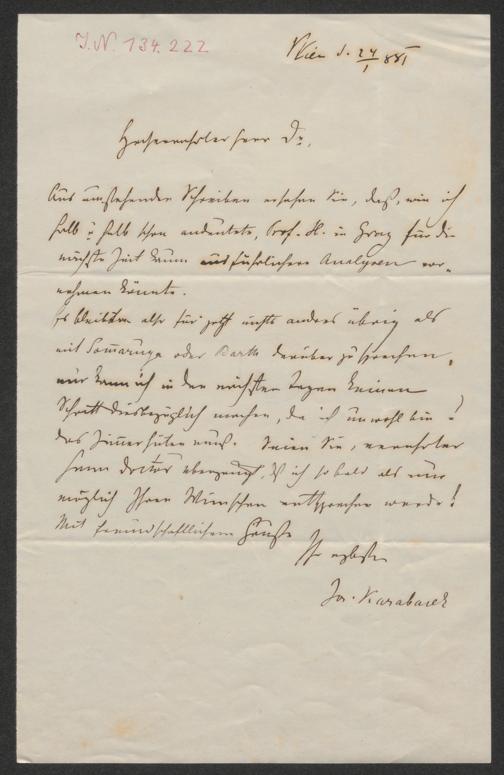 I.N. 134.222
Wien d. 24/1 881
Hochverehrter Herr Dr,
Aus umstehendem Schreiben ersehen Sie, daß, wie ich
halb u halb schon andeutete, Prof. H. in Graz für die
nächste Zeit kaum ausführlichere Analysen vor-
nehmen könnte.
Es bleibt also für jetzt nichts anders übrig als
mit Somaruga oder Barth darüber zu sprechen,
nur kann ich in den nächsten Tagen keinen
Schritt diesbezüglich machen, da ich unwohl bin u
das Zimmer hüten muß. Seien Sie, verehrter
Herr Doctor überzeugt, daß ich sobald als nur
möglich Ihren Wünschen entsprechen werde!
Mit freundschaftlichem Gruße
Ihr ergebenster
Jos. Karabacek